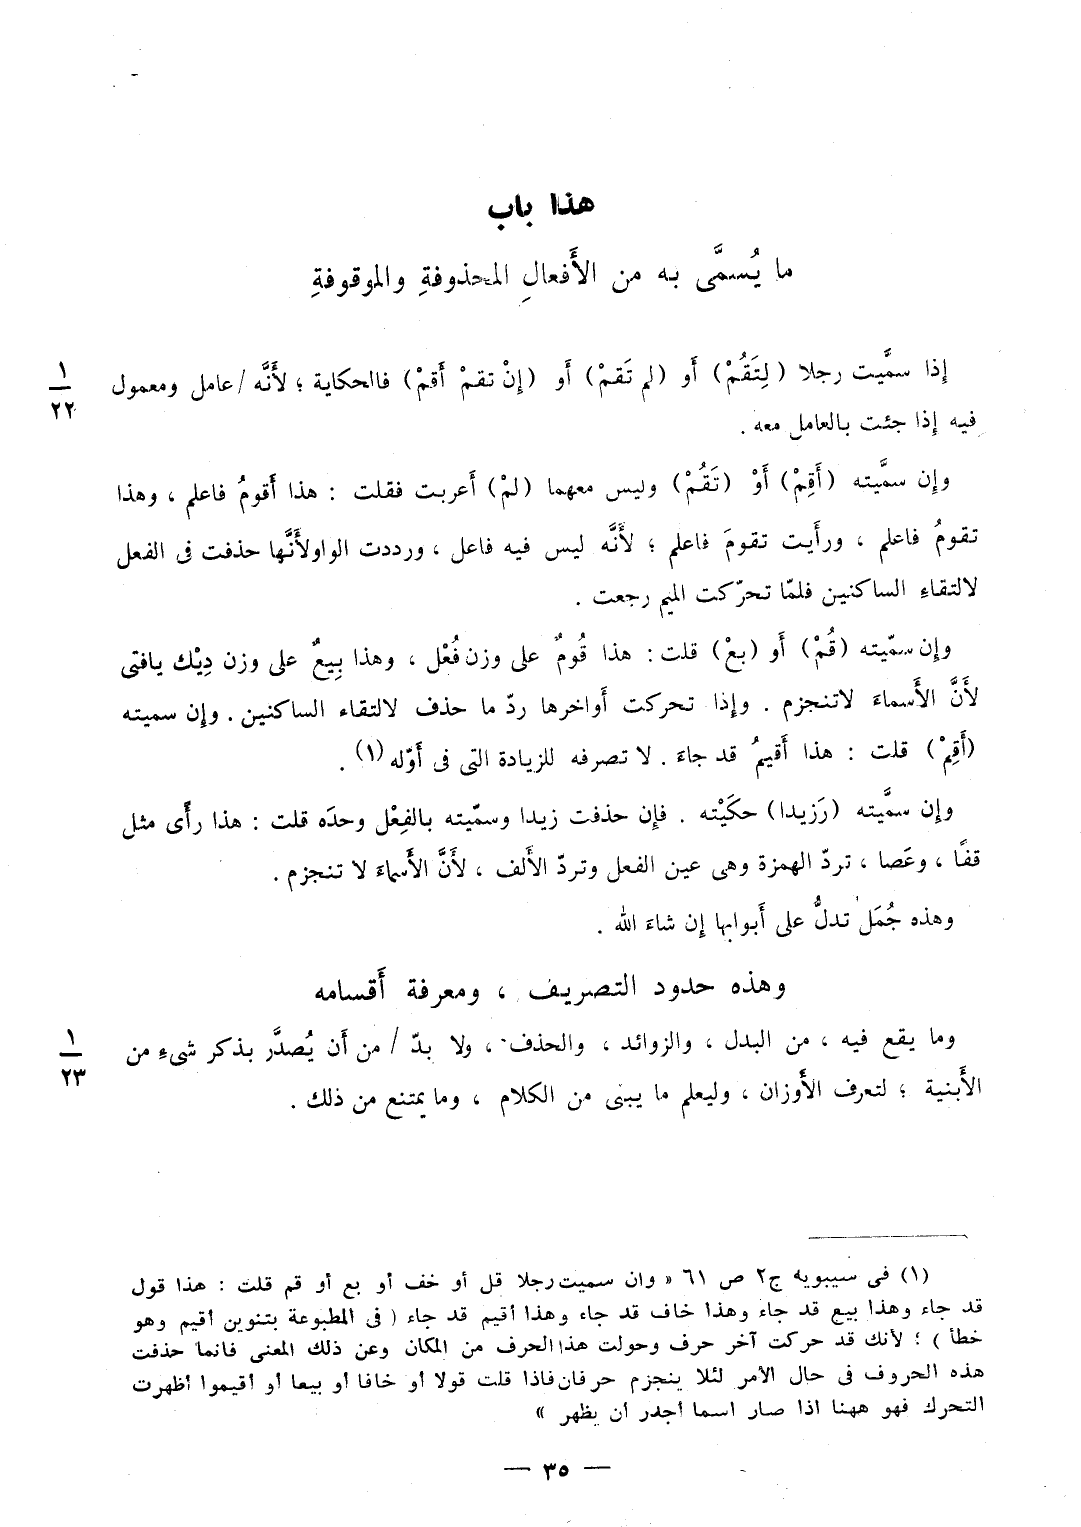 هذا باب
ما يُسمَّى به من الأَفعالِ المحذوفةِ والموقوفةِ
إِذا سمَّيت رجلا (لِتَقُمْ) أَو (لم تَقمْ) أَو (إِنْ تقمْ أَقمْ) فالحكاية ؛ لأَنَّه / عامل ومعمول
١
٢٢
فيه إِذا جئت بالعامل معه .
وإِن سمَّيته (أَقِمْ) أَوْ (تَقُمْ) وليس معهما (لمْ) أَعربت فقلت : هذا أَقومُ فاعلم ، وهذا
تقومُ فاعلم ، ورأَيت تقومَ فاعلم ؛ لأَنَّه ليس فيه فاعل ، ورددت الواولأَنَّها حذفت فى الفعل
لالتقاءِ الساكنين فلمّا تحرّكت الميم رجعت .
وإِن سمّيته (قُمْ) أَو (بعْ) قلت : هذا قُومٌ على وزن فُعْل ، وهذا بِيعٌ على وزن دِيْك يافتى
لأَنَّ الأَسماءَ لاتنجزم . وإِذا تحركت أَواخرها ردّ ما حذف لالتقاء الساكنين . وإِن سميته
(أَقِمْ) قلت : هذا أَقيمُ قد جاءَ . لا تصرفه للزيادة التى فى أَوّله (١) .
وإِن سمَّيته (رَزيدا) حكَيْته . فإِن حذفت زيدا وسمّيته بالفِعْل وحدَه قلت : هذا رأًى مثل
قفًا ، وعَصا ، تردّ الهمزة وهى عين الفعل وتردّ الأَلف ، لأَنَّ الأَسماءَ لا تنجزم .
وهذه جُمَل تدلُّ على أَبوابها إِن شاءَ الله .
وهذه حدود التصريف ، ومعرفة أَقسامه
وما يقع فيه ، من البدل ، والزوائد ، والحذف ، ولا بدّ / من أَن يُصدَّر بذكر شىءٍ من
١
٢٣
الأَبنية ؛ لتعرف الأَوزان ، وليعلم ما يبنى من الكلام ، وما يمتنع من ذلك .
(١) فى سيبويه ج٢ ص ٦١ « وان سميت رجلا قل أو خف أو بع أو قم قلت : هذا قول
قد جاء وهذا بيع قد جاء وهذا خاف قد جاء وهذا أقيم قد جاء ( فى المطبوعة بتنوين أقيم وهو
خطأ ) ؛ لأنك قد حركت آخر حرف وحولت هذا الحرف من المكان وعن ذلك المعنى فانما حذفت
هذه الحروف فى حال الأمر لئلا ينجزم حرفان فاذا قلت قولا أو خافا أو بيعا أو أقيموا أظهرت
التحرك فهو ههنا اذا صار اسما أجدر أن يظهر »
— ٣٥ —